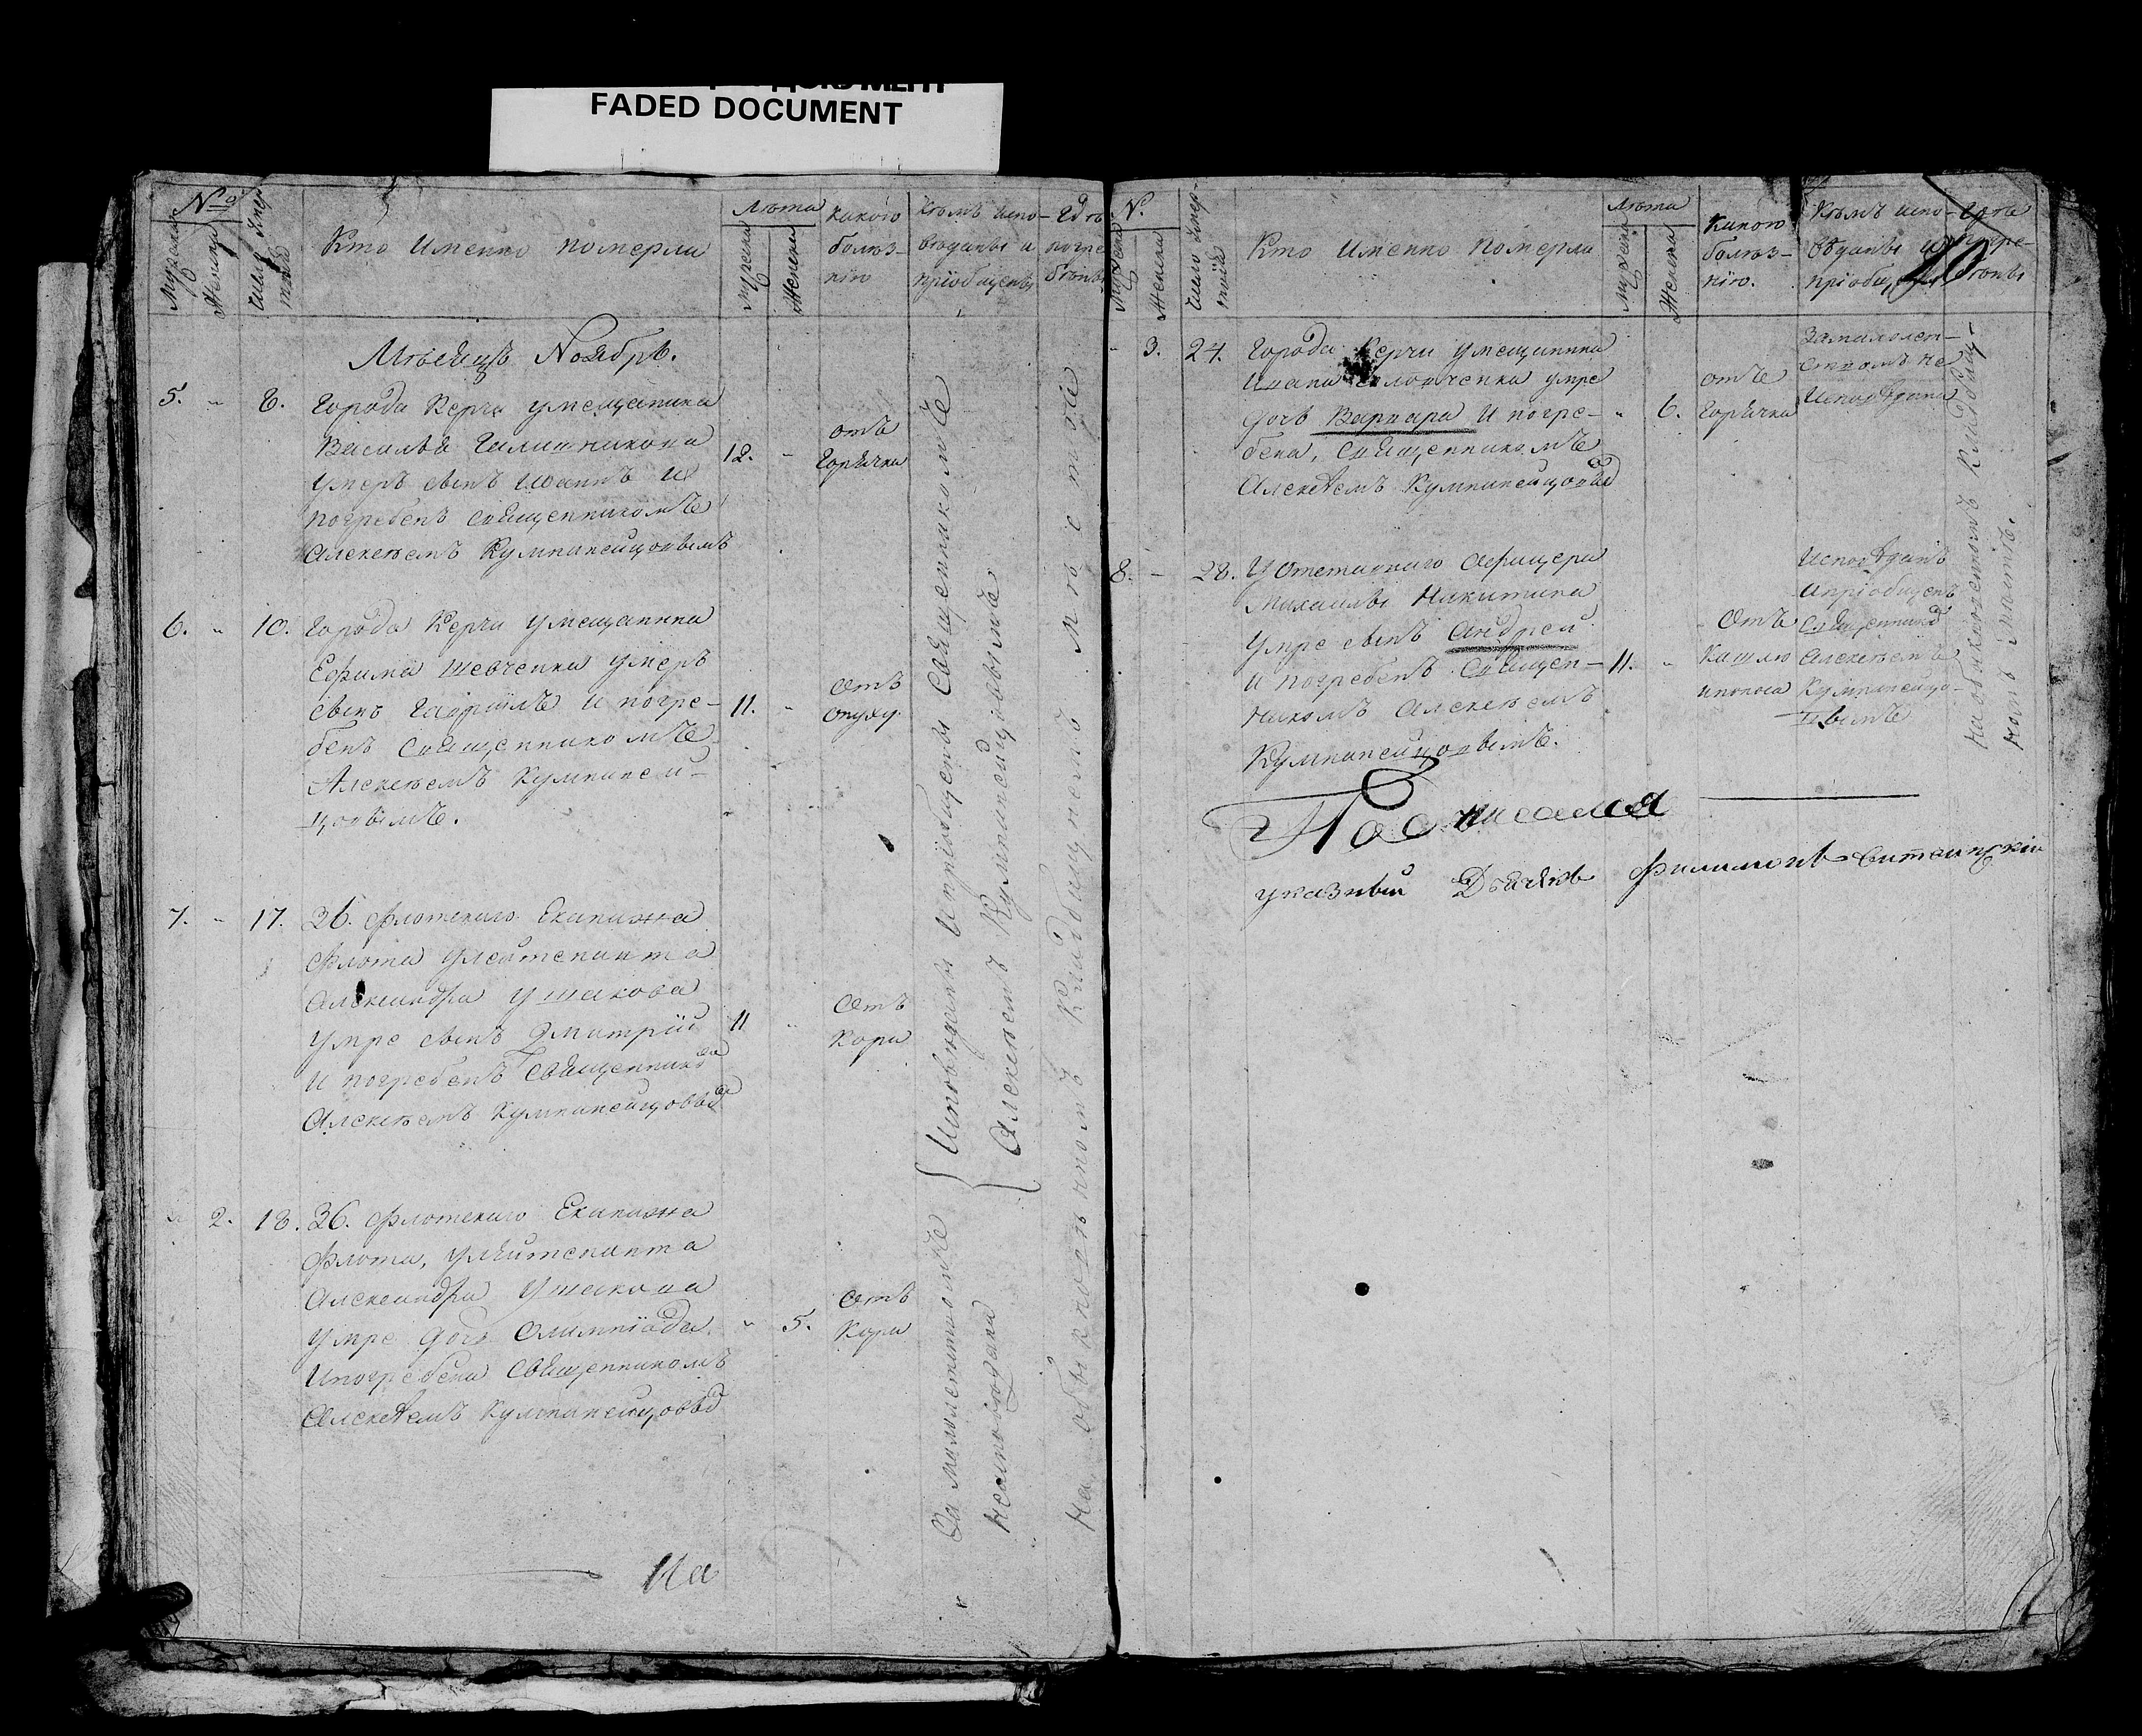 FADED DOCUMENT
№
Мужеска
Женска
Число Умер
твій
Кто Именно померли
Лѣта
Мужеска
Женска
Какою
болѣз-
нію
Кѣмъ испо-
вѣданы и
пріобщены
Гдѣ
погре
бены
Мѣсяцъ Ноябрь.
5. „ 8. Города Керчи умещанина
Василья
умеръ сынъ Іоаннъ и
погребенъ священникомъ
Алексѣемъ Кумпанейцовымъ
12. „
отъ
Горячки
6. „ 10. Города Керчи умещанина
Ефима Шевченка умеръ
сынъ Гавріилъ и погре-
бенъ священникомъ
Алексѣемъ Кумпаней-
цовымъ.
11. „
Отъ
опуху.
7. „ 17. 36. Флотскаго Екипажа
Флота улейтенанта
Александра Ушакова
умре сынъ Дмитрій
и погребенъ священником
Алексѣемъ Кумпанейцовым
11 „
Отъ
Кори
„ 2. 18. 36. Флотскаго Екипажа
Флота, улейтенанта
Александра Ушакова
умре дочь Олимпіада.
Ипогребена священникомъ
Алексѣемъ Кумпанейцовым
„ 5.
Отъ
Кори
Исповѣданы Ипріобщены Священникомъ
Алексѣемъ Кумпанейцовымъ
За малолетством
неисповѣдана
На обыкновенномъ Кладбищенскомъ Мѣстѣ
На
№.
Мужеска
Женска
Число Умер-
твій
Кто Именно померли
Лѣта
Мужеска
Женска
Какою
болѣз-
нію.
Кѣмъ испо-
вѣданы и
пріобщ
Гдѣ
погре-
бены
„ 3. 24. Города Керчи умещанина
Ивана умре
дочь Варвара и погре-
бена, священникомъ
Алексѣемъ Кумпанейцовым
„ 6.
отъ
Горячки
Замалолет-
ствомъ не
Исповѣдана
8. „ 28. У Отставнаго Афицера
Михаилы Никитина
умре сынъ Андрей
и погребенъ Священ-
никомъ Алексѣемъ
Кумпанейцовымъ.
11. „
Отъ
Кашлю
ипоноса
Исповѣданъ
Ипріобщенъ
Священником
Алексѣемъ
Кумпанейцо-
вымъ
На обыкновенномъ Кладбищ-
номъ мѣстѣ.
указный Дьячекъ Филимонъ